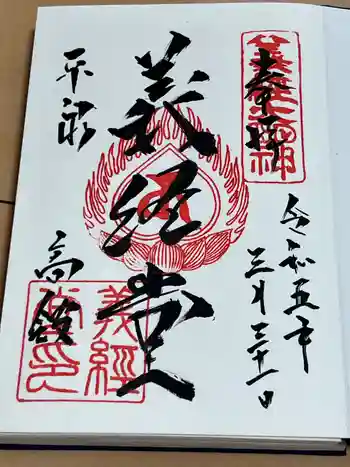 奉拝
令和五年
三月三十一日
義経堂
平泉
高館
義経
堂印